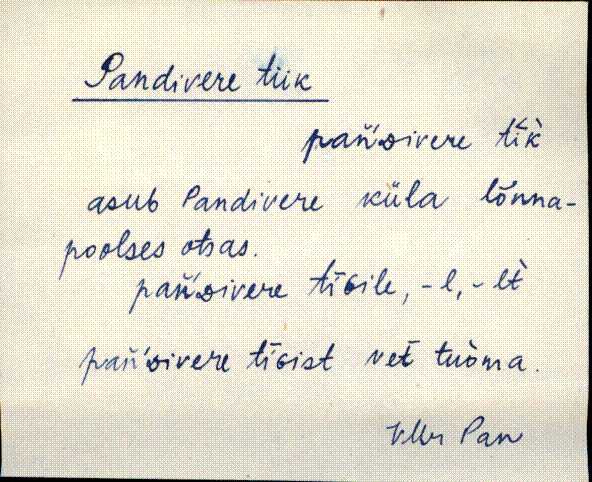 Pandivere tiik
pań'ᴅivere tīk̀
asub Pandivere küla lõnna-
poolses otsas.
pań'ᴅivere tīɢile, -l, -lt̀
pań'ᴅivere tīɢist vet̀ tuòma.
VMr Pan